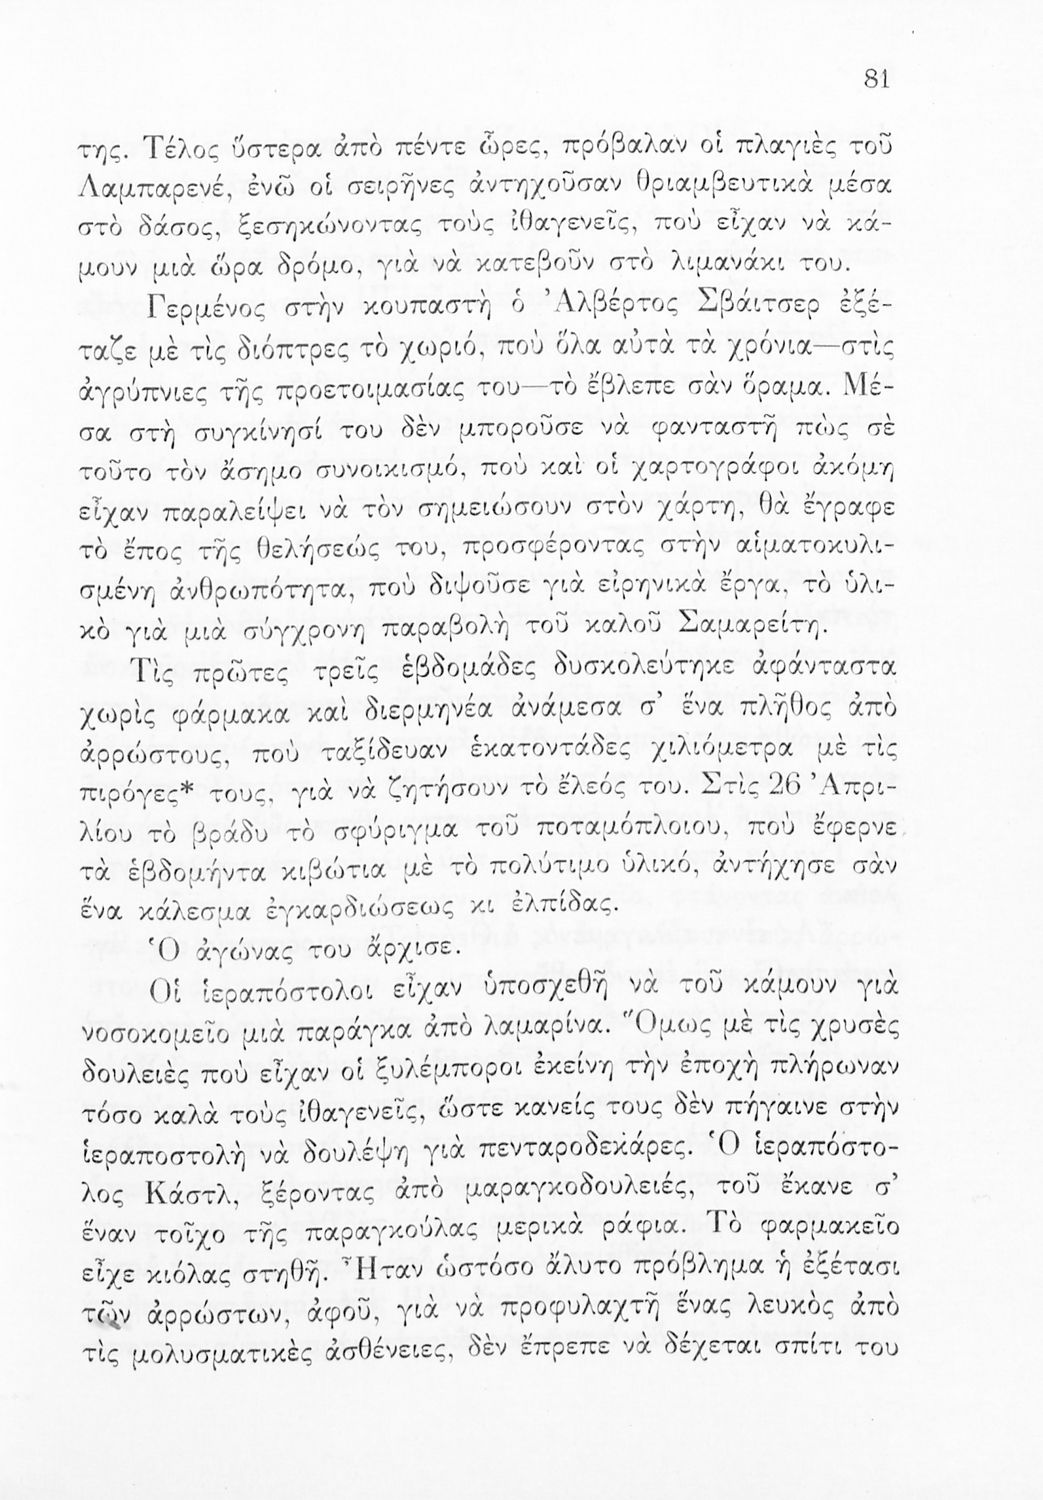 81
της. Τέλος ὕστερα ἀπὸ πέντε ὧρες, πρόβαλαν οἱ πλαγιὲς τοῦ
Λαμπαρενέ, ἐνῶ οἱ σειρῆνες ἀντηχοῦσαν θριαμβευτικὰ μέσα
στὸ δάσος, ξεσηκώνοντας τοὺς ἰθαγενεῖς, ποὺ εἶχαν νὰ κά-
μουν μιὰ ὥρα δρόμο, γιὰ νὰ κατεβοῦν στὸ λιμανάκι του.
Γερμένος στὴν κουπαστὴ ὁ Ἀλβέρτος Σβάιτσερ ἐξέ-
ταζε μὲ τὶς διόπτρες τὸ χωριό, ποὺ ὅλα αὐτὰ τὰ χρόνια—στὶς
ἀγρύπνιες τῆς προετοιμασίας του—τὸ ἔβλεπε σὰν ὅραμα. Μέ-
σα στὴ συγκίνησί του δὲν μποροῦσε νὰ φανταστῆ πὼς σὲ
τοῦτο τὸν ἄσημο συνοικισμό, ποὺ καὶ οἱ χαρτογράφοι ἀκόμη
εἶχαν παραλείψει νὰ τὸν σημειώσουν στὸν χάρτη, θὰ ἔγραφε
τὸ ἔπος τῆς θελήσεώς του, προσφέροντας στὴν αἱματοκυλι-
σμένη ἀνθρωπότητα, ποὺ διψοῦσε γιὰ εἰρηνικὰ ἔργα, τὸ ὑλι-
κὸ γιὰ μιὰ σύγχρονη παραβολὴ τοῦ καλοῦ Σαμαρείτη.
Τὶς πρῶτες τρεῖς ἑβδομάδες δυσκολεύτηκε ἀφάνταστα
χωρὶς φάρμακα καὶ διερμηνέα ἀνάμεσα σ’ ἕνα πλῆθος ἀπὸ
ἀρρώστους, ποὺ ταξίδευαν ἑκατοντάδες χιλιόμετρα μὲ τὶς
πιρόγες* τους, γιὰ νὰ ζητήσουν τὸ ἔλεός του. Στὶς 26 Ἀπρι-
λίου τὸ βράδυ τὸ σφύριγμα τοῦ ποταμόπλοιου, ποὺ ἔφερνε
τὰ ἑβδομήντα κιβώτια μὲ τὸ πολύτιμο ὑλικό, ἀντήχησε σὰν
ἕνα κάλεσμα ἐγκαρδιώσεως κι ἐλπίδας.
Ὁ ἀγώνας του ἄρχισε.
Οἱ ἱεραπόστολοι εἶχαν ὑποσχεθῆ νὰ τοῦ κάμουν γιὰ
νοσοκομεῖο μιὰ παράγκα ἀπὸ λαμαρίνα. Ὅμως μὲ τὶς χρυσὲς
δουλειὲς ποὺ εἶχαν οἱ ξυλέμποροι ἐκείνη τὴν ἐποχὴ πλήρωναν
τόσο καλὰ τοὺς ἰθαγενεῖς, ὥστε κανείς τους δὲν πήγαινε στὴν
ἱεραποστολὴ νὰ δουλέψη γιὰ πενταροδεκάρες. Ὁ ἱεραπόστο-
λος Κάστλ, ξέροντας ἀπὸ μαραγκοδουλειές, τοῦ ἔκανε σ’
ἕναν τοῖχο τῆς παραγκούλας μερικὰ ράφια. Τὸ φαρμακεῖο
εἶχε κιόλας στηθῆ. Ἦταν ὡστόσο ἄλυτο πρόβλημα ἡ ἐξέτασι
τῶν ἀρρώστων, ἀφοῦ, γιὰ νὰ προφυλαχτῆ ἕνας λευκὸς ἀπὸ
τὶς μολυσματικὲς ἀσθένειες, δὲν ἔπρεπε νὰ δέχεται σπίτι του